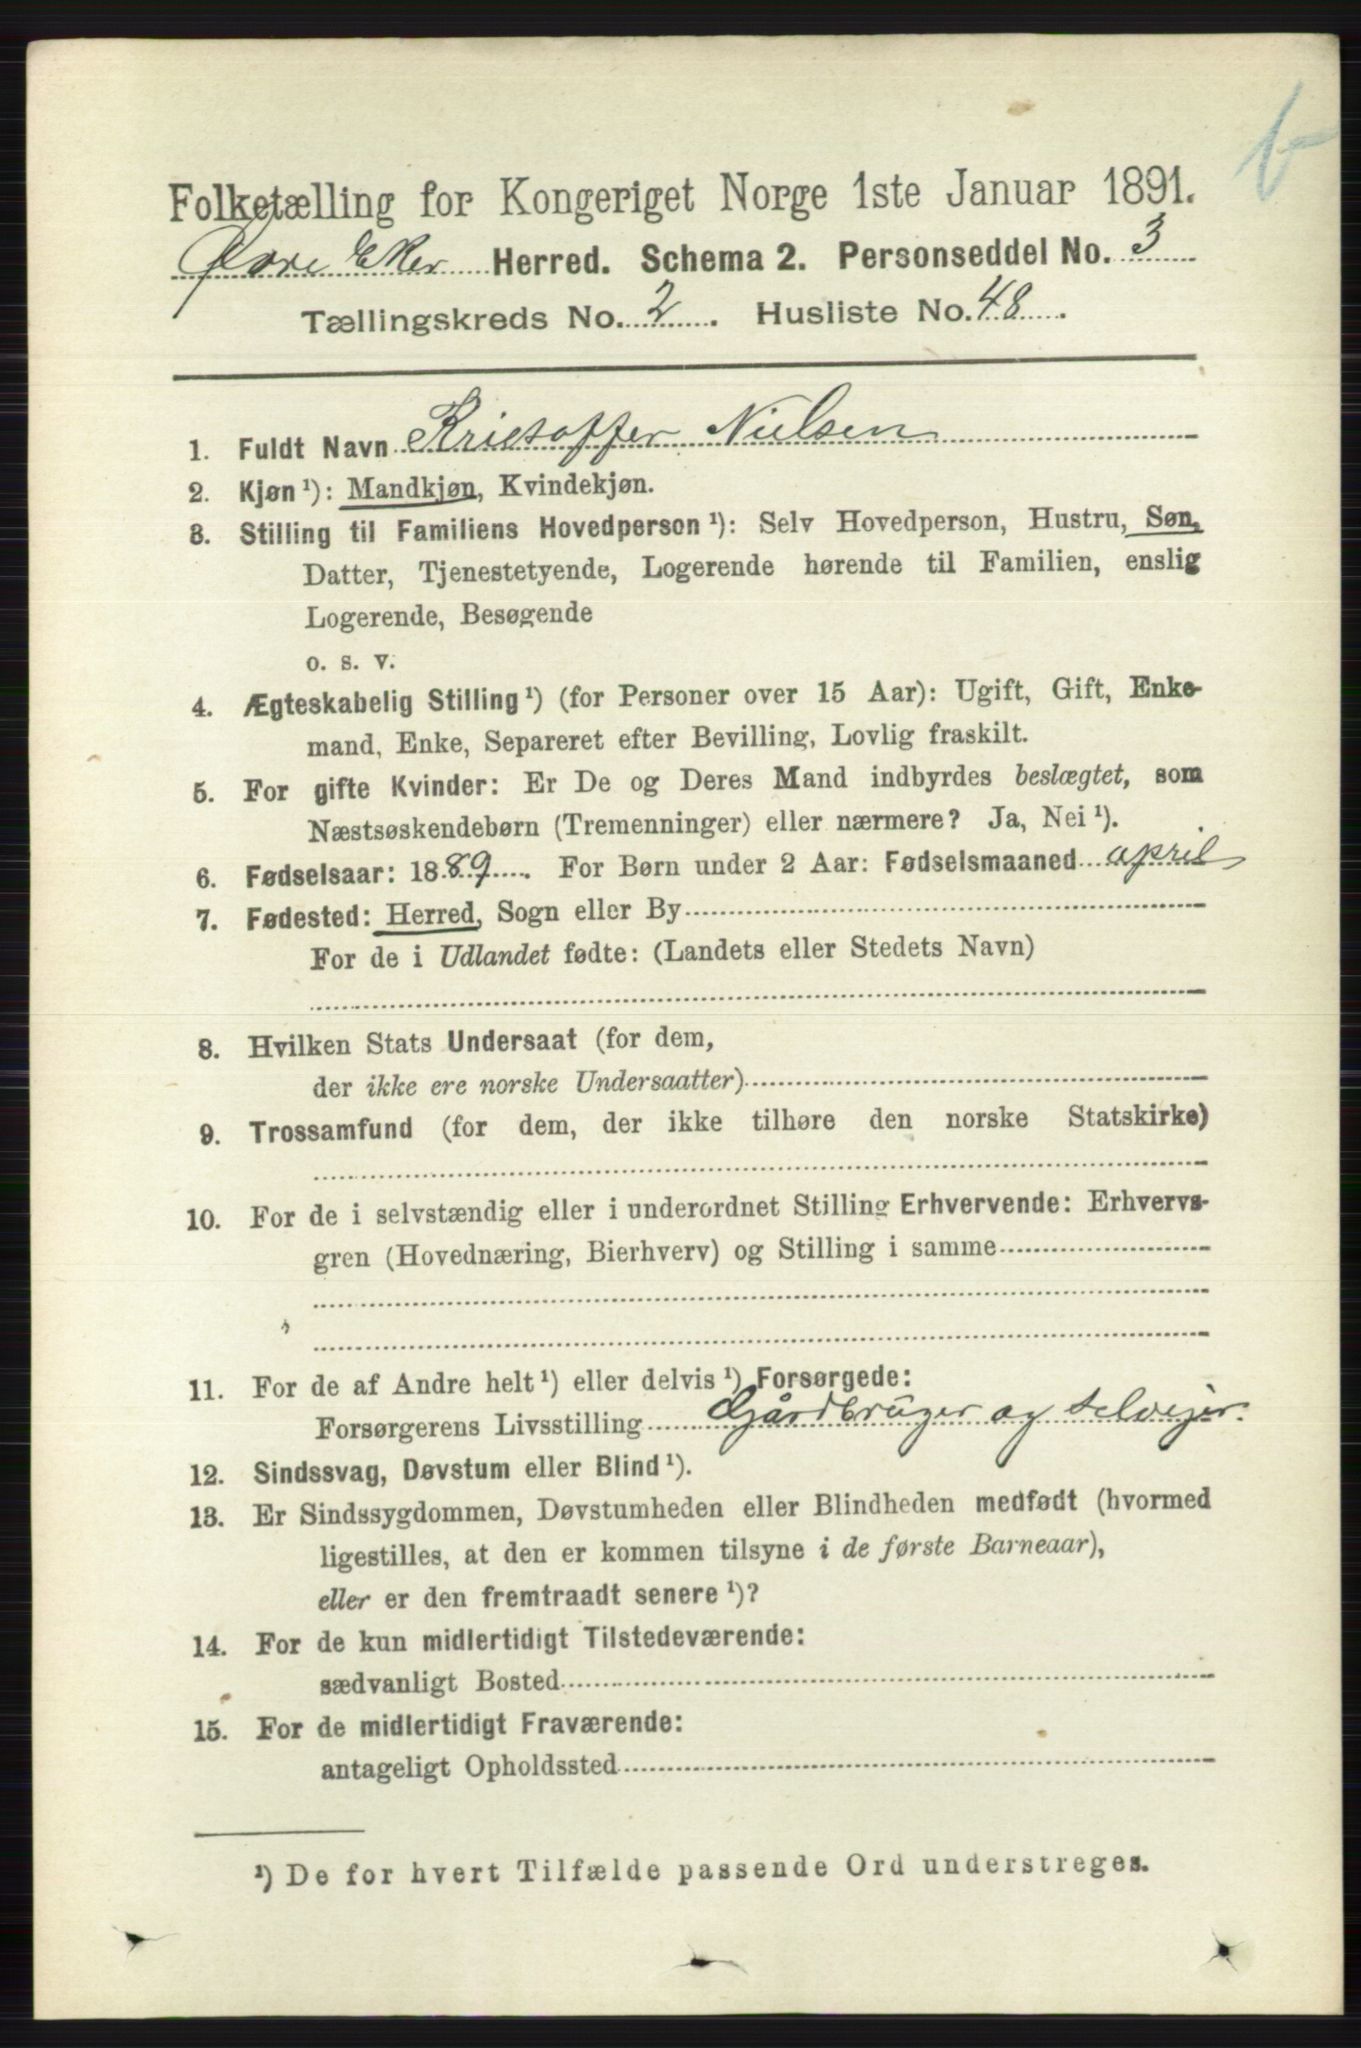 b
Folketælling for Kongeriget Norge 1ste Januar 1891.
Øvre Eker Herred. Schema 2. Personseddel No. 3
Tællingskreds No. 2. Husliste No. 48.
1. Fuldt Navn Kristoffer Nielsen
2. Kjøn ¹): Mandkjøn, Kvindekjøn.
3. Stilling til Familiens Hovedperson ¹): Selv Hovedperson, Hustru, Søn,
Datter, Tjenestetyende, Logerende hørende til Familien, enslig
Logerende, Besøgende
o. s. v.
4. Ægteskabelig Stilling ¹) (for Personer over 15 Aar): Ugift, Gift, Enke-
mand, Enke, Separeret efter Bevilling, Lovlig fraskilt.
5. For gifte Kvinder: Er De og Deres Mand indbyrdes beslægtet, som
Næstsøskendebørn (Tremenninger) eller nærmere? Ja, Nei ¹).
6. Fødselsaar: 1889. For Børn under 2 Aar: Fødselsmaaned april
7. Fødested: Herred, Sogn eller By
For de i Udlandet fødte: (Landets eller Stedets Navn)
8. Hvilken Stats Undersaat (for dem,
der ikke ere norske Undersaatter)
9. Trossamfund (for dem, der ikke tilhøre den norske Statskirke)
10. For de i selvstændig eller i underordnet Stilling Erhvervende: Erhvervs-
gren (Hovednæring, Bierhverv) og Stilling i samme
11. For de af Andre helt ¹) eller delvis ¹) Forsørgede:
Forsørgerens Livsstilling Gårdbruger og selveier.
12. Sindssvag, Døvstum eller Blind ¹).
13. Er Sindssygdommen, Døvstumheden eller Blindheden medfødt (hvormed
ligestilles, at den er kommen tilsyne i de første Barneaar),
eller er den fremtraadt senere ¹)?
14. For de kun midlertidigt Tilstedeværende:
sædvanligt Bosted
15. For de midlertidigt Fraværende:
antageligt Opholdssted
¹) De for hvert Tilfælde passende Ord understreges.